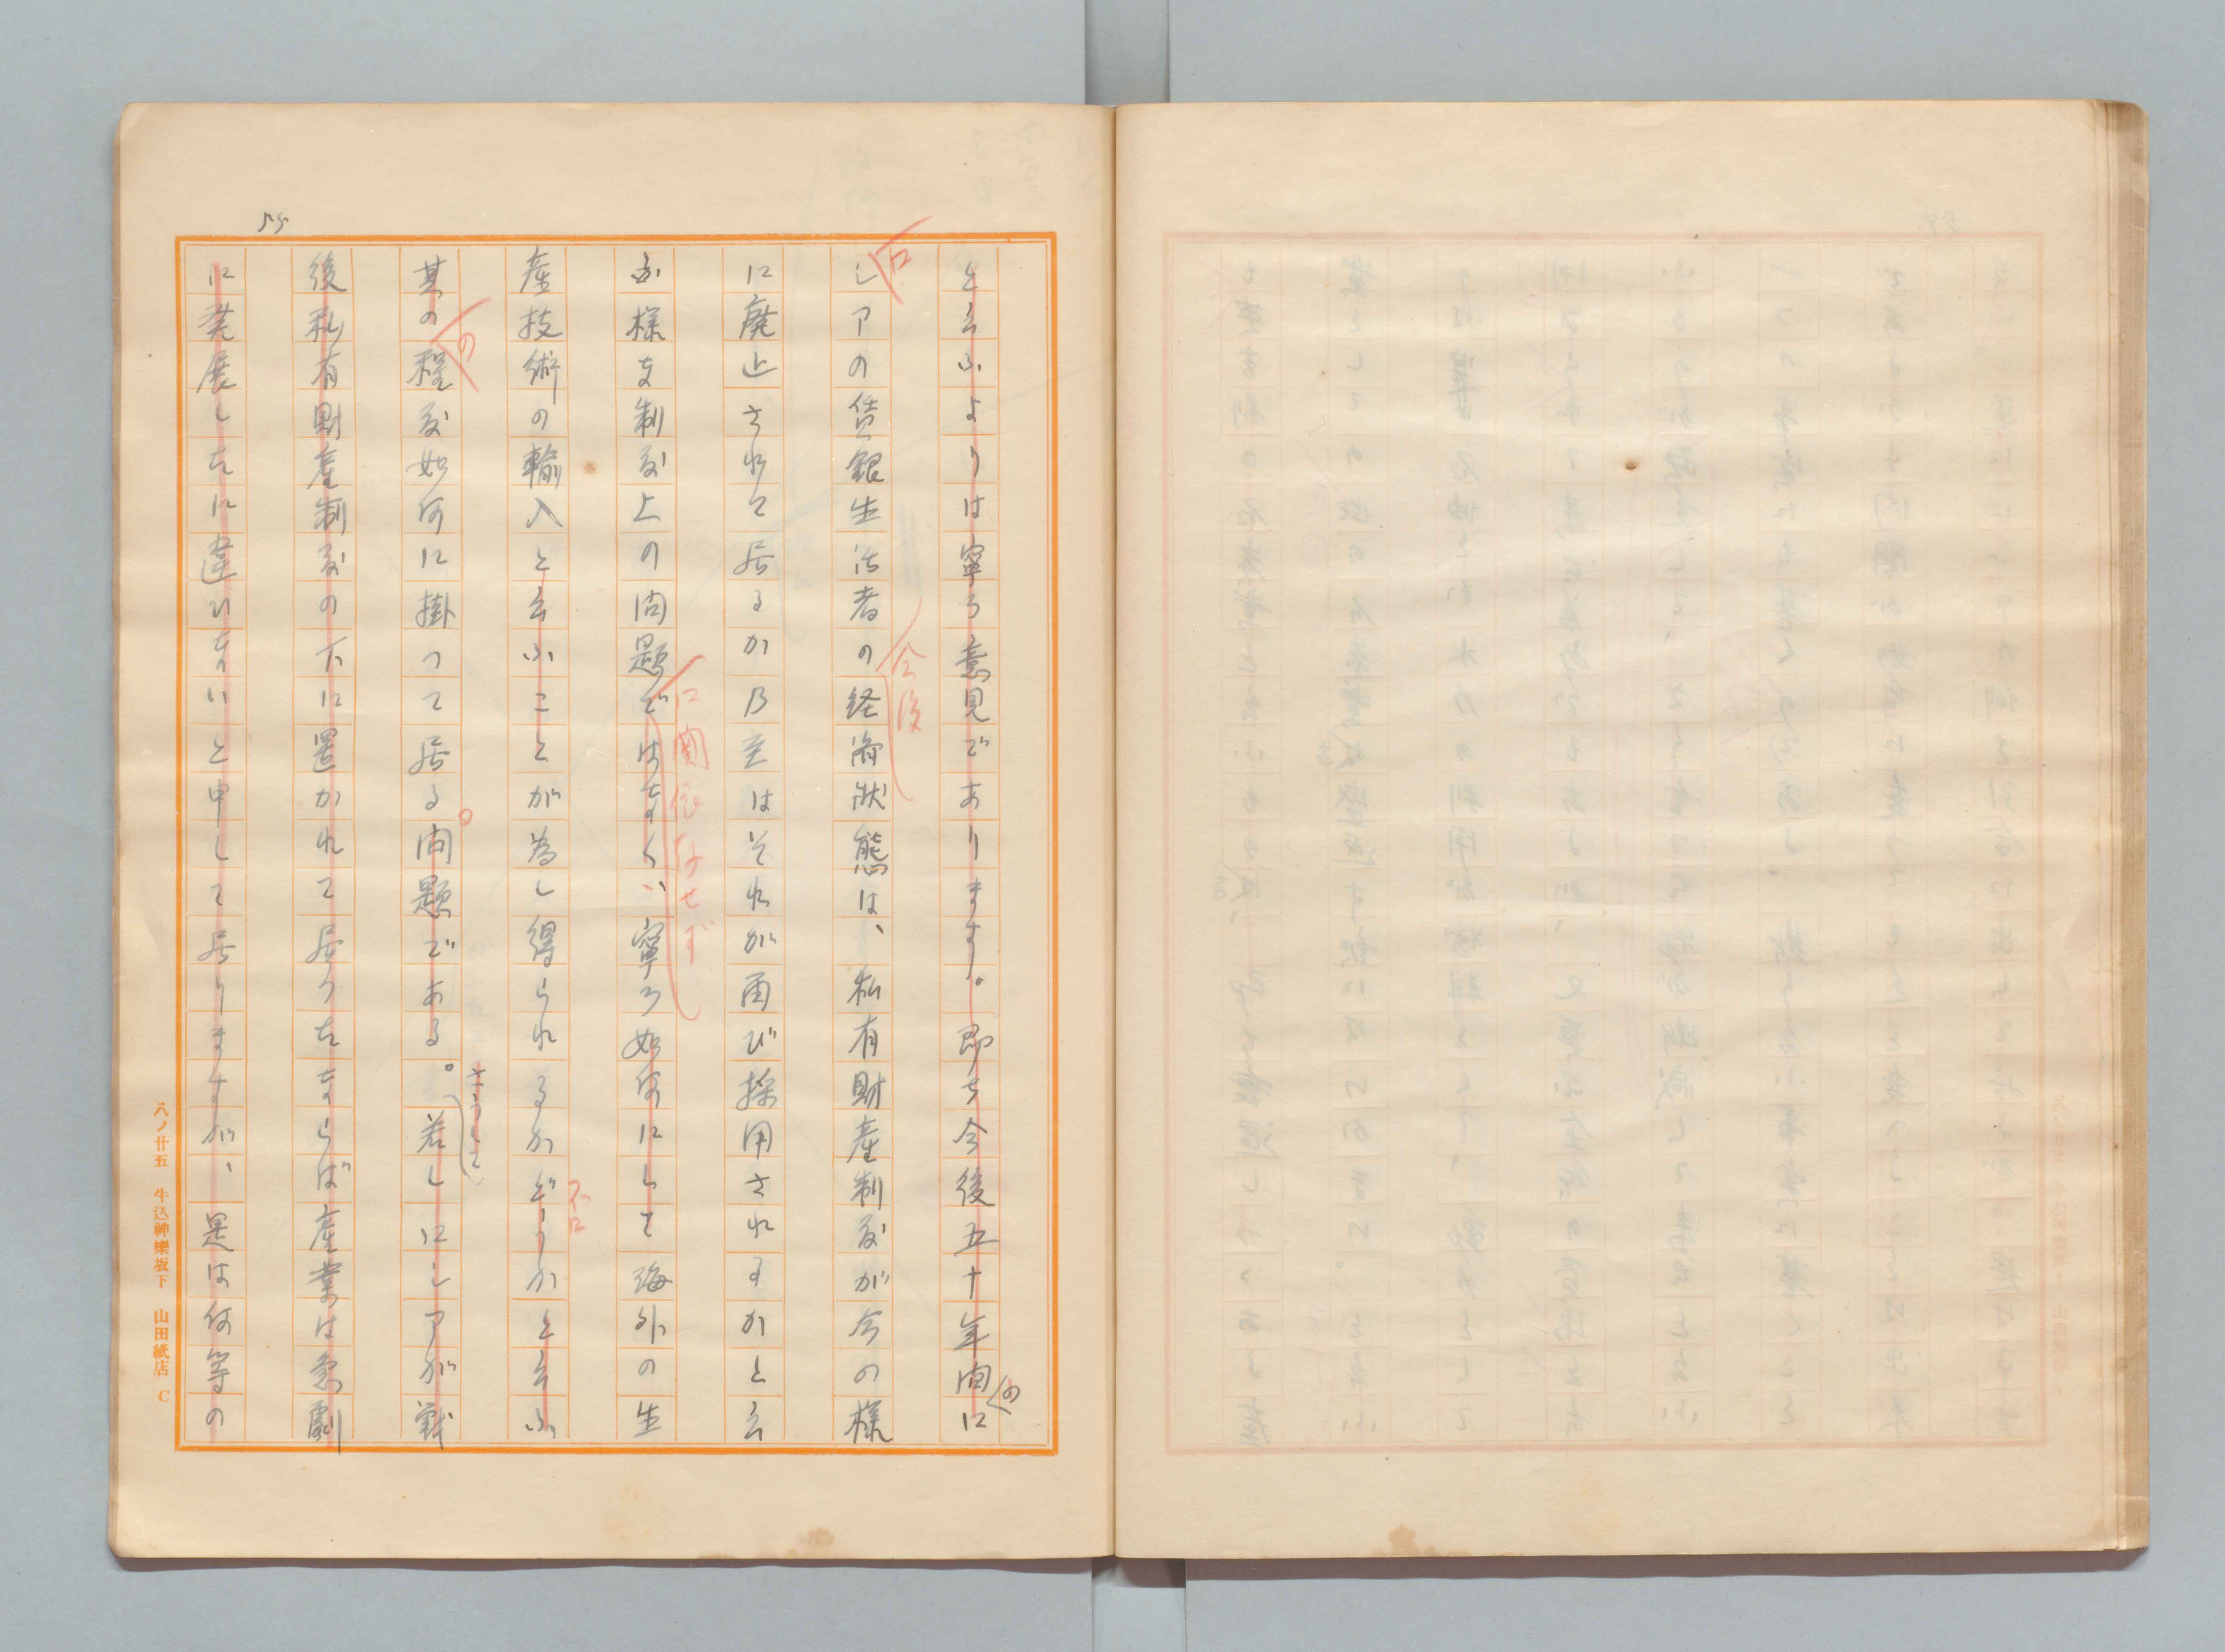 55
と云ふよりは寧ろ意見であります。即ち今後五十年間に
の
ロ
シアの賃銀生活者の経済状態は、私有財産制度が今の様
今後
に廃止されて居るか乃至はそれが再び採用されるかと云
ふ様な制度上の問題ではなく、寧ろ如何にして海外の生
に関係なせず
産技術の輸入と云ふことが為し得られるかどうかと云ふ
其の程度如何に掛つて居る問題である。若しロシアが戦
の
。
さうして
後私有財産制度の下に置かれて居つたならば産業は急劇
に発展したに違ひないと申して居りますが、是は何等の
八ノ廿五 牛込神樂坂下 山田紙店 C